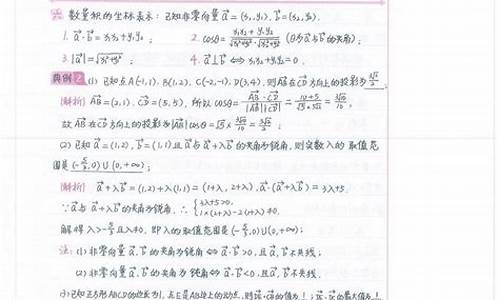 六 数量积的坐标表示：已知非零向量 a⃗ = (x₁,y₁), b⃗ = (x₂,y₂).
1. a⃗·b⃗ = x₁x₂+y₁y₂；  2. cosθ =  (θ为a⃗与b⃗的夹角)；
3. |a⃗| = ；  4. a⃗⊥b⃗ ⇔ x₁x₂+y₁y₂=0.
典例2 (1) 已知点A(-1,1), B(1,2), C(-2,-1), D(3,4), 则AB⃗在CD⃗方向上的投影为 3√2/2；
[解析] AB⃗=(2,1), CD⃗=(5,5), 所以cosθ= AB⃗·CD⃗/|AB⃗||CD⃗| = (10+5)/(√5×5√2) = 3√10/10；
故AB⃗在CD⃗方向上的投影为|AB⃗|cosθ=√5×3√10/10=3√2/2；
(2) 已知a⃗=(1,2), b⃗=(1,1)且a⃗与a⃗+λb⃗的夹角为锐角, 则实数λ的取值范
围是(-5/3,0)∪(0,+∞)；
[解析] a⃗+λb⃗=(1,2)+λ(1,1)=(1+λ, 2+λ), a⃗·(a⃗+λb⃗)=3λ+5.
∵a⃗与a⃗+λb⃗的夹角为锐角, ∴ {3λ+5>0, 1×(2+λ)-2(1+λ)≠0.
解得λ>-5/3且λ≠0, 即λ的取值范围是(-5/3,0)∪(0,+∞)；
注：(1) 非零向量a⃗,b⃗的夹角为锐角⇔a⃗·b⃗>0,且a⃗,b⃗不共线；
(2) 非零向量a⃗,b⃗的夹角为钝角⇔a⃗·b⃗<0,且a⃗,b⃗不共线.
(3) 已知正方形ABCD的边长为1, 点E是AB边上的动点, 则DE⃗·CB⃗的值为1；DE⃗·DC⃗的最大值为1